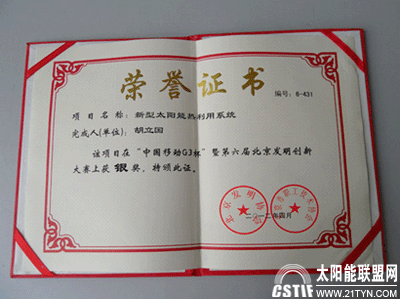 荣誉证书
编号：6-431
项目名称：新型太阳能热利用系统
完成人(单位)：胡立国
该项目在“中国移动G3杯”暨第六届北京发明创新
大赛上获银奖，特颁此证。
北京发明协会
二〇一二年四月
太阳能联盟网
CSTIF
www.21TYN.com